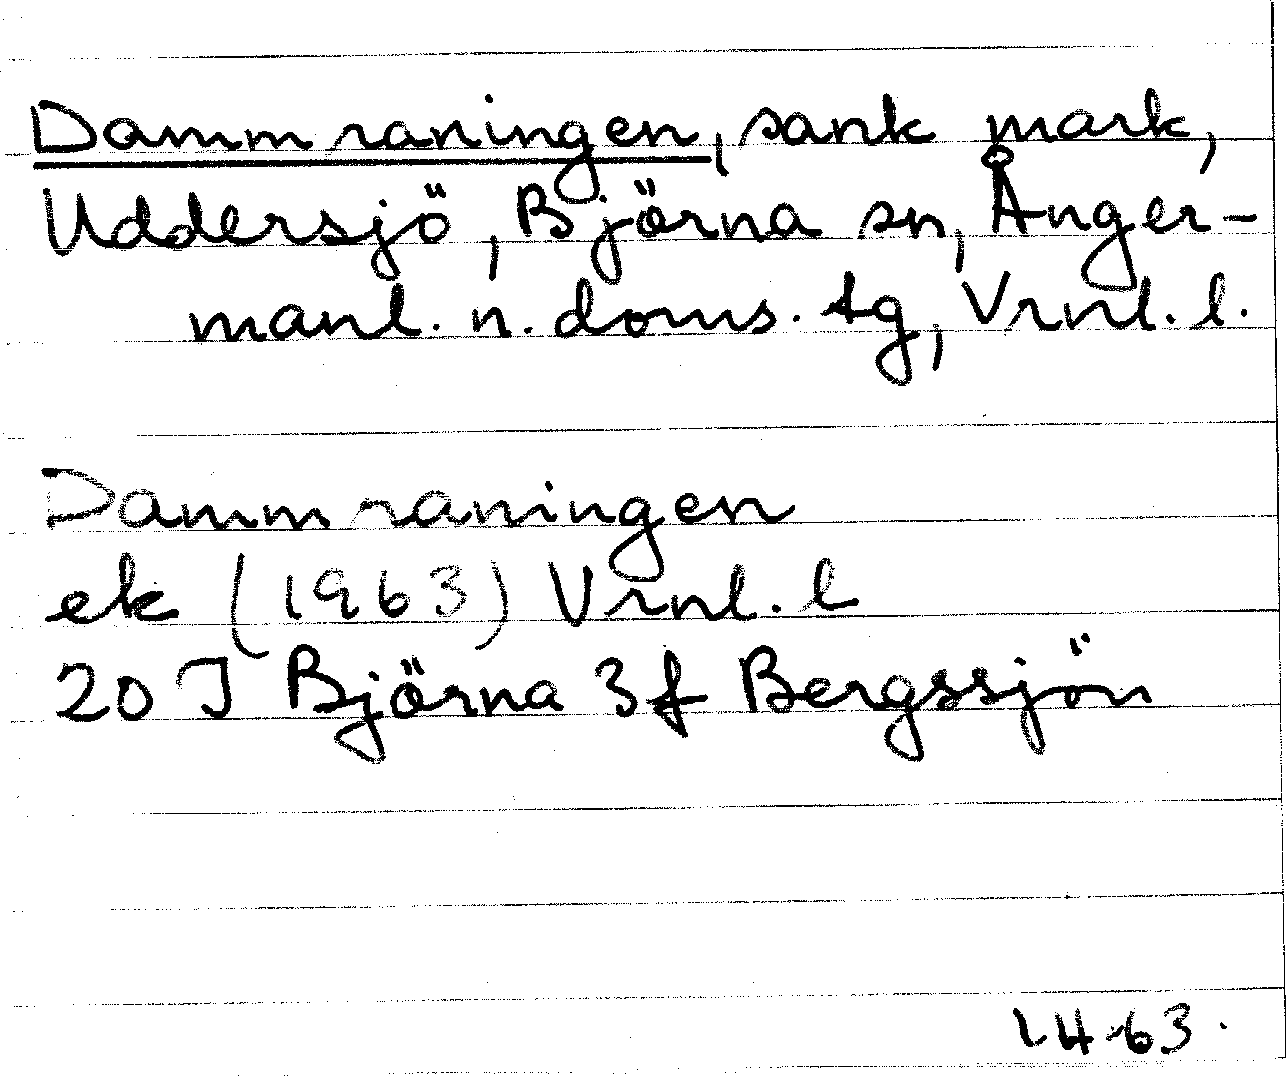 Dammraningen, sank mark,
Uddersjö, Björna sn, Ånger-
manl. n. doms. tg, Vrnl. l.
Dammraningen
ek (1963) Vrnl. l
20 J Björna 3f Bergssjön
LH-63.